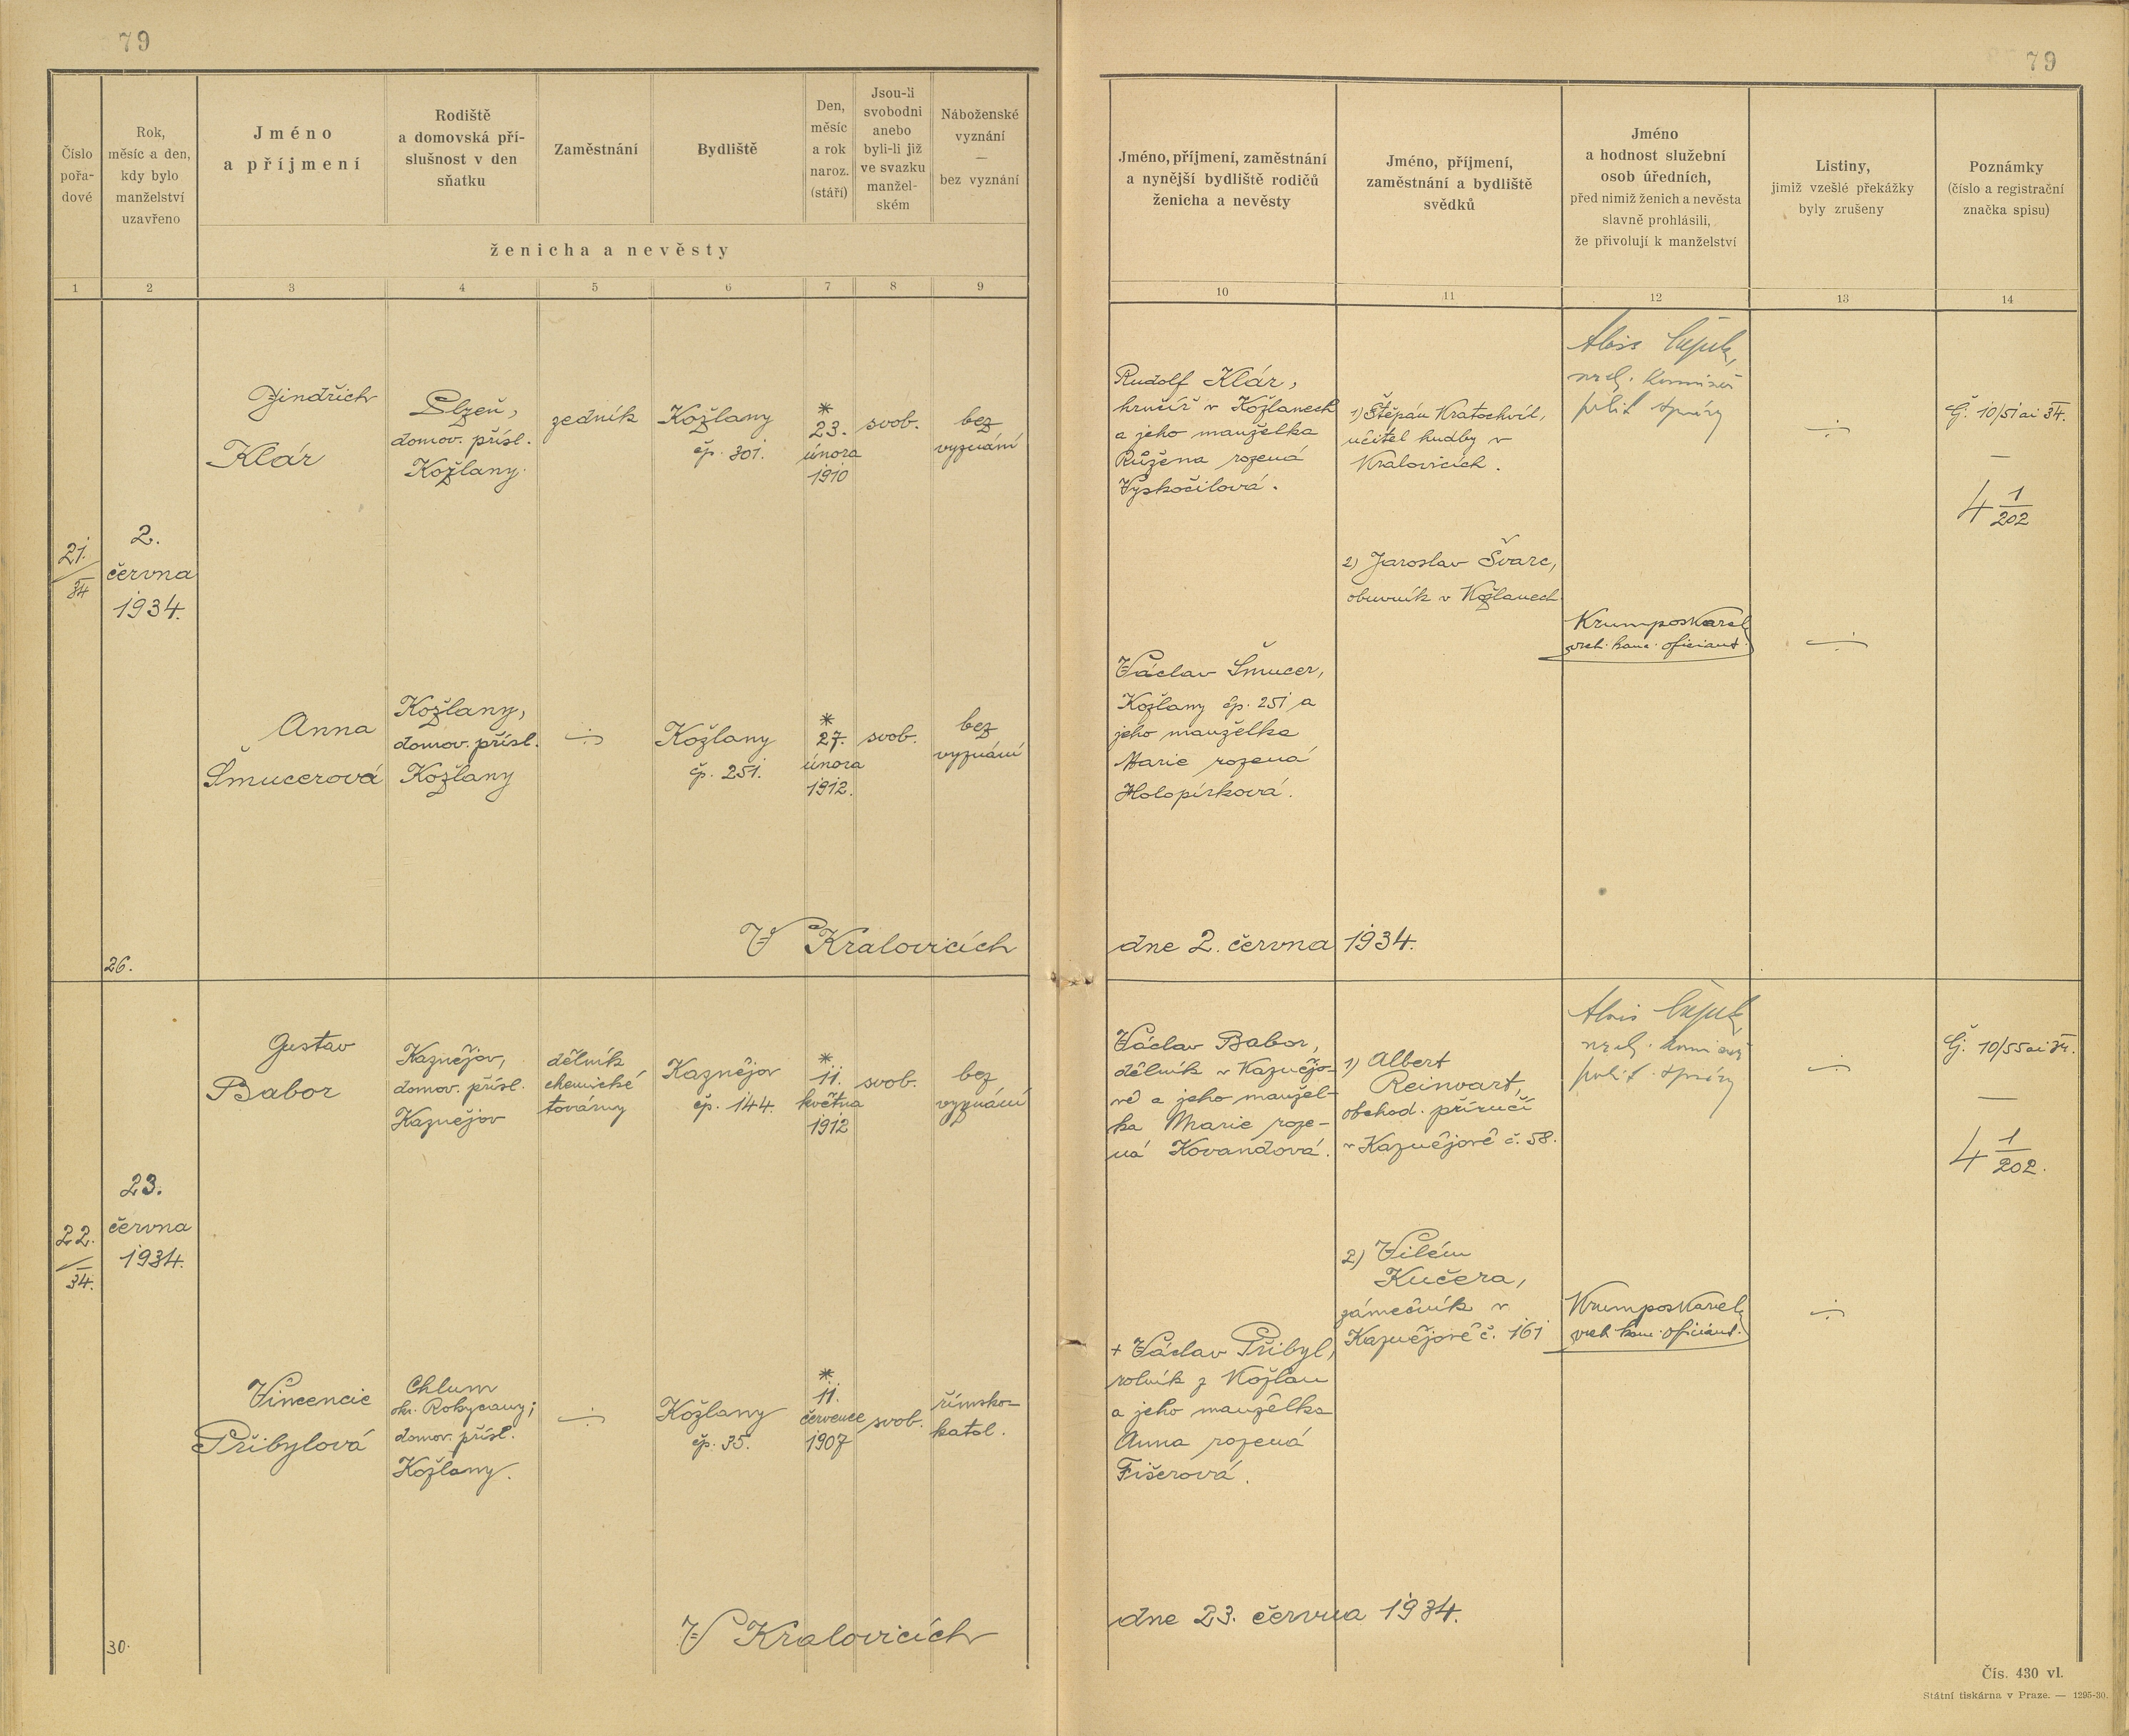 79
79
Číslo
pořa-
dové
Rok,
měsíc a den,
kdy bylo
manželství
uzavřeno
Jméno
a příjmení
Rodiště
a domovská pří-
slušnost v den
sňatku
Zaměstnání
Bydliště
Den,
měsíc
a rok
naroz.
(stáří)
Jsou-li
svobodni
anebo
byli-li již
ve svazku
manžel-
ském
Náboženské
vyznání
—
bez vyznání
ženicha a nevěsty
Jméno, příjmení, zaměstnání
a nynější bydliště rodičů
ženicha a nevěsty
Jméno, příjmení,
zaměstnání a bydliště
svědků
Jméno
a hodnost služební
osob úředních,
před nimiž ženich a nevěsta
slavně prohlásili,
že přivolují k manželství
Listiny,
jimiž vzešlé překážky
byly zrušeny
Poznámky
(číslo a registrační
značka spisu)
1 2 3 4 5 6 7 8 9 10 11 12 13 14
21.
34
2.
června
1934.
Jindřich
Klár
Plzeň,
domov. přísl.
Kožlany.
zedník
Kožlany
čp. 301.
*
23.
února
1910
svob.
bez
vyznání
Rudolf Klár,
hrnčíř v Kožlanech
a jeho manželka
Růžena rozená
Vyskočilová.
1) Štěpán Kratochvíl,
učitel hudby v
Kralovicích.
2) Jaroslav Švarc,
obuvník v Kožlanech
Alois
polit. správy
Krumpos Karel
vrch. kanc. oficiant.
Č. 10/51 ai 34.
—
4 1/202
Anna
Šmucerová
Kožlany,
domov. přísl.
Kožlany
Kožlany
čp. 251.
*
27.
února
1912.
svob.
bez
vyznání
Václav Šmucer,
Kožlany čp. 251 a
jeho manželka
Marie rozená
Holopírková.
26.
V Kralovicích dne 2. června 1934.
22.
34.
23.
června
1934.
Gustav
Babor
Kaznějov,
domov. přísl.
Kaznějov
dělník
chemické
továrny
Kaznějov
čp. 144.
*
11.
května
1912
svob.
bez
vyznání
Václav Babor,
dělník v Kaznějo-
vě a jeho manžel-
ka Marie roze-
ná Kovandová.
1) Albert
Reinvart,
obchod. příručí
v Kaznějově č. 58.
2) Vilém
Kučera,
zámečník v
Kaznějově č. 161
Alois
polit. správy
Krumpos Karel
vrch. kanc. oficiant.
Č. 10/55 ai 34.
—
4 1/202.
Vincencie
Přibylová
Chlum
okr. Rokycany;
domov. přísl.
Kožlany.
Kožlany
čp. 35.
*
11.
července
1907
svob.
římsko-
katol.
+ Václav Přibyl,
rolník z Kožlan
a jeho manželka
Anna rozená
Fišerová.
30.
V Kralovicích dne 23. června 1934.
Čís. 430 vl.
Státní tiskárna v Praze. — 1295-30.